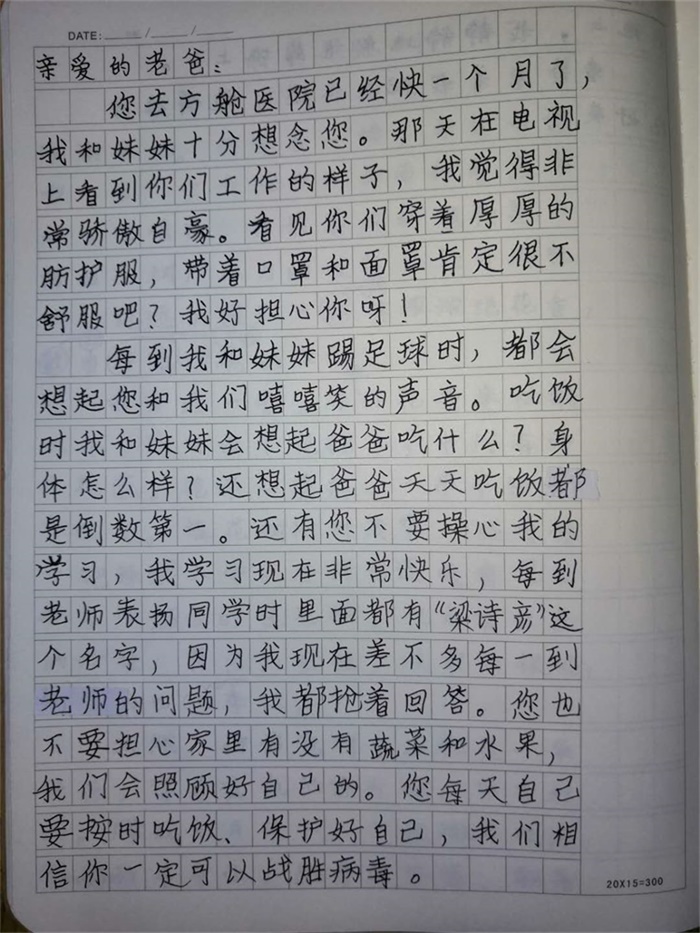 DATE: / /
亲爱的老爸：
您去方舱医院已经快一个月了，
我和妹妹十分想念您。那天在电视
上看到你们工作的样子，我觉得非
常骄傲自豪。看见你们穿着厚厚的
防护服，带着口罩和面罩肯定很不
舒服吧？我好担心你呀！
每到我和妹妹踢足球时，都会
想起您和我们嘻嘻笑的声音。吃饭
时我和妹妹会想起爸爸吃什么？身
体怎么样？还想起爸爸天天吃饭都
是倒数第一。还有您不要操心我的
学习，我学习现在非常快乐，每到
老师表扬同学时里面都有“梁诗彦”这
个名字，因为我现在差不多每一到
老师的问题，我都抢着回答。您也
不要担心家里有没有蔬菜和水果，
我们会照顾好自己的。您每天自己
要按时吃饭、保护好自己，我们相
信你一定可以战胜病毒。
20X15=300